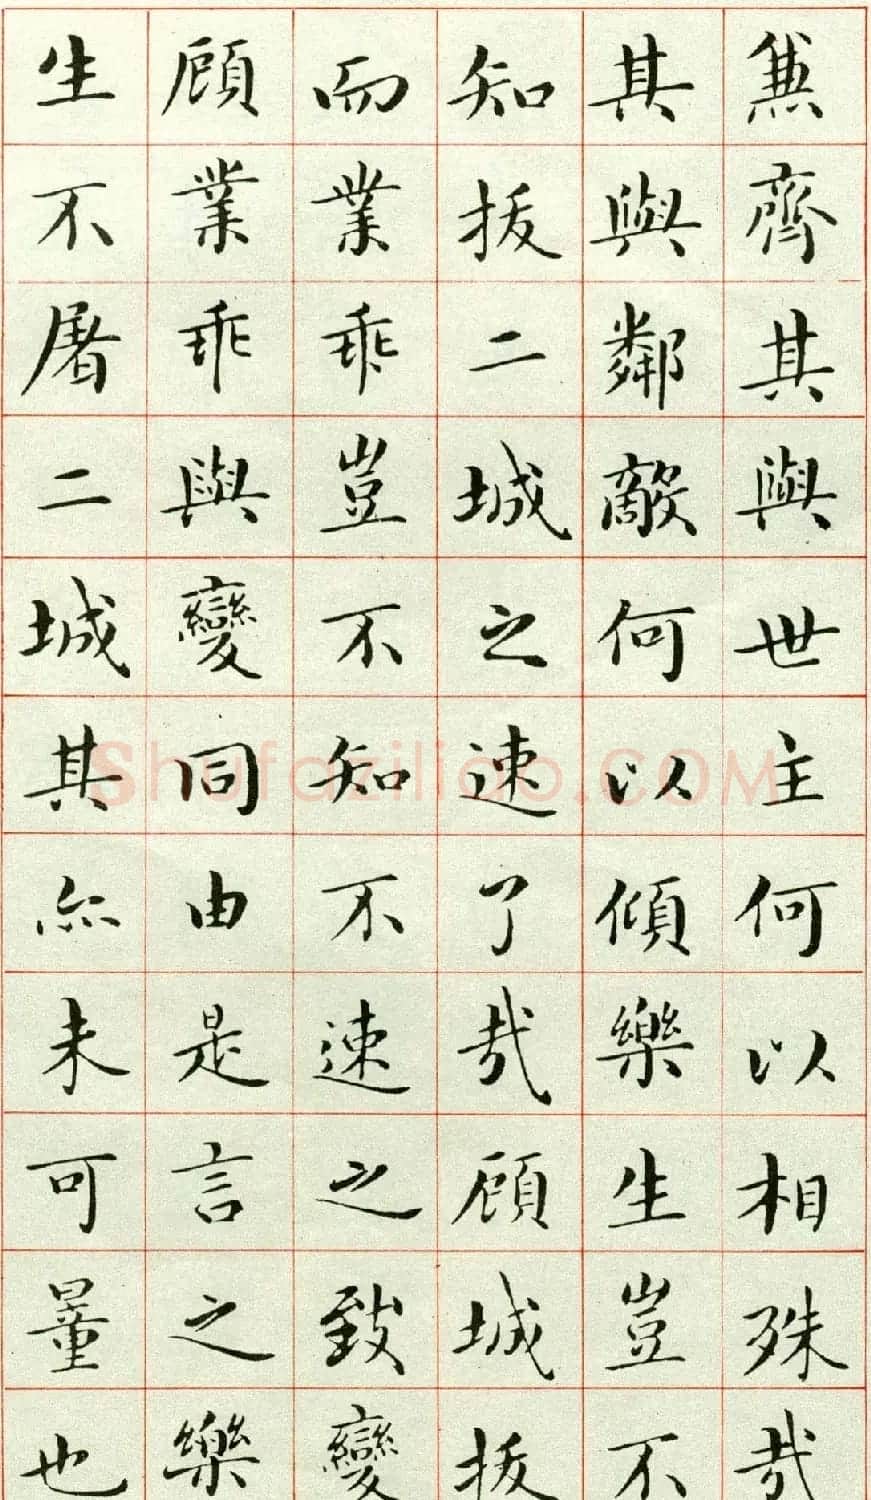 兼齊其與世主何以相殊哉
其與鄰敵何以傾樂生豈不
知拔二城之速了哉顧城拔
而業乖豈不知不速之致變
顧業乖與變同由是言之樂
生不屠二城其亦未可量也
shufaziliao.COM